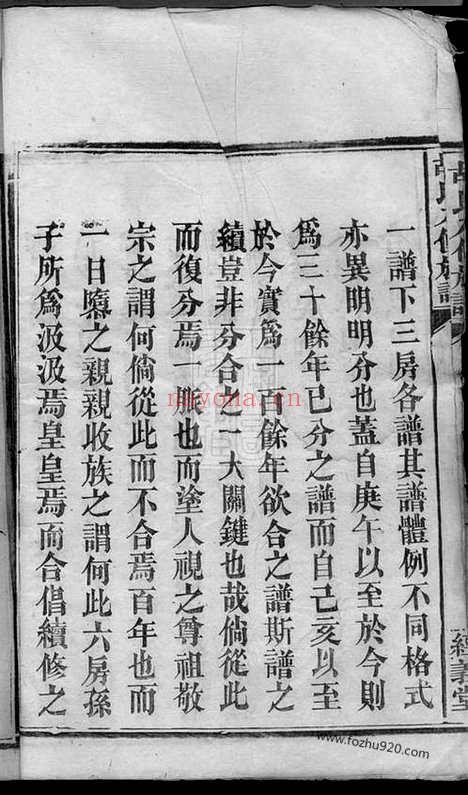 一譜下三房各譜其譜體例不同格式
亦異明明分也蓋自庚午以至於今則
爲三十餘年已分之譜而自己亥以至
於今實爲一百餘年欲合之譜斯譜之
續豈非分合之一大關鍵也哉倘從此
而復分焉一脈也而塗人視之尊祖敬
宗之謂何倘從此而不合焉百年也而
一日隳之親親收族之謂何此六房孫
子所爲汲汲焉皇皇焉而合倡續修之
經義堂
nayona.cn
www.fozhu920.com